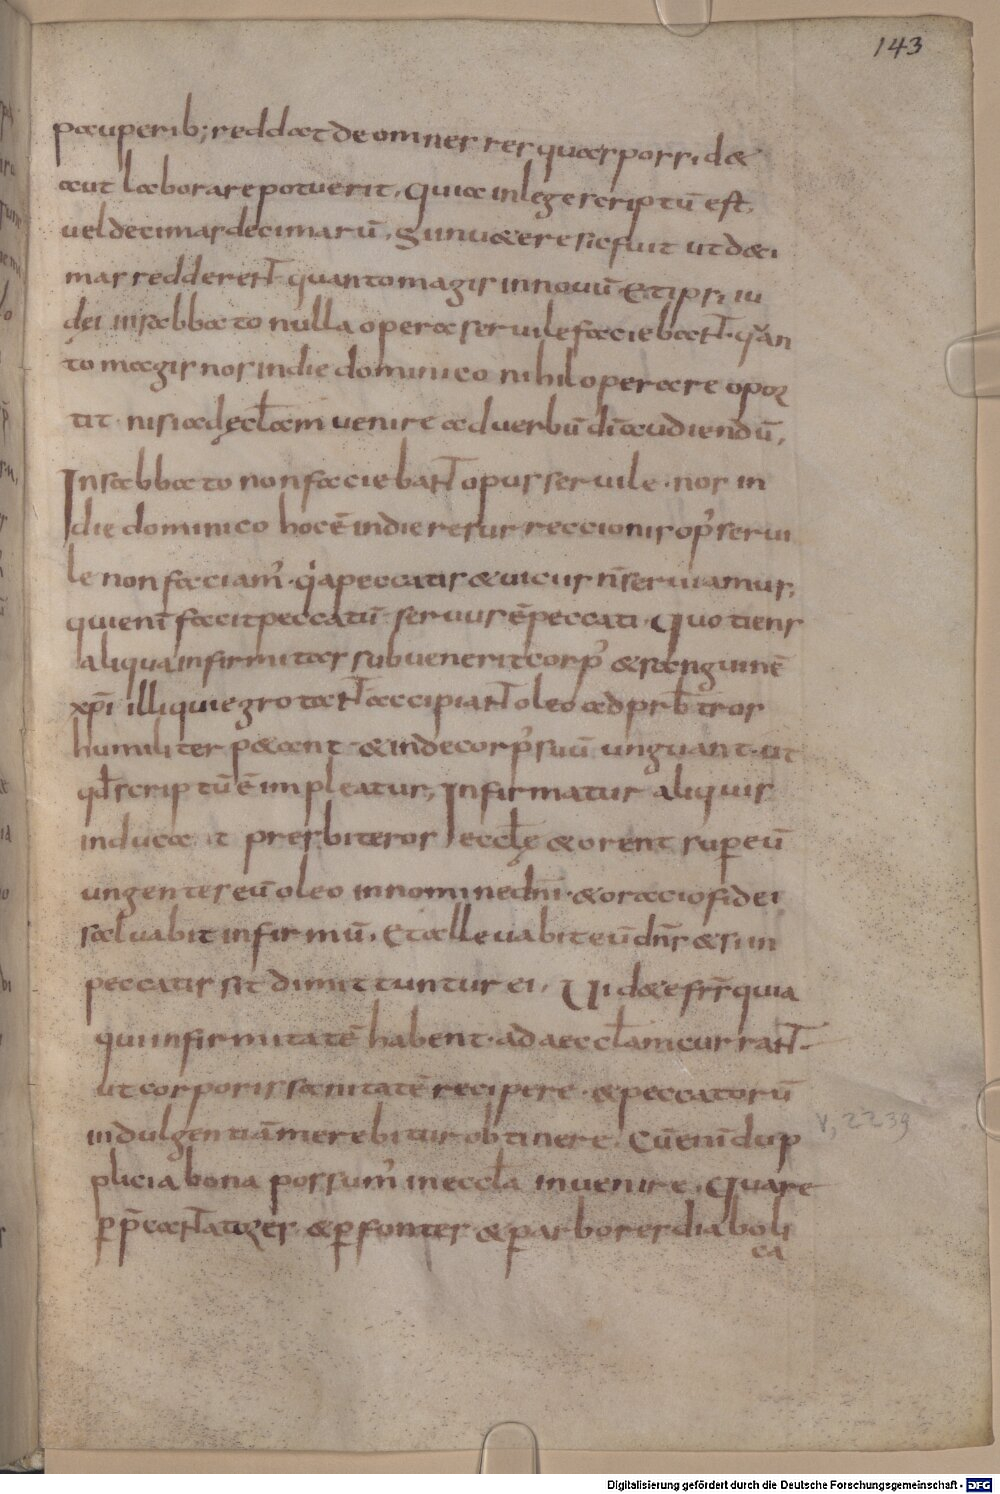 143
pauperib; reddat de omnes res quas possidet
aut laborare potuerit. Quia in lege scriptū est,
vel decimas decimarū. Si in uetere sic fuit ut deci
mas redderent quanto magis in nouū. Et ipsi iu
dęi in sabbato nulla opera seruile faciebant. quan
to magis nos in die dominico nihil operare opor
tit. nisi ad ęccl̄am uenire ad uerbū dī audiendū,
In sabbato non faciebant opus seruile. nos in
die dominico hoc ē in die resurreccionis op' serui
le non faciam'. q̇a peccatis & uicus n̄ seruiamus,
qui enī facit peccatū seruus ē peccati. Quotiens
aliqua infirmitas subuenerit corp' & sanguinē
xp̄i illi qui egrotant accipiant oleo ad prb̄iros
humiliter petant & inde corp' suū unguant. ut
qd̄ scriptū ē impleatur, Infirmatur aliquis
inducat presbiteros eccl̄ę & orent sup eū
ungentes eū oleo in nomine dn̄i. & oracio fidei
saluabit infirmū. Et alleuabit eū dn̄s & si in
peccatis sit dimittuntur ei. Uidete fr̄s quia
qui infirmitatē habent. ad aeccl̄am currant.
ut corporis sanitatē recipere. & peccatorū
indulgentiā merebitur obtinere. Cū enī dup
plicia bona possum' in eccl̄a inuenire. Quare
p p̄cantatores. & p fontes & p arbores diaboli
ca
V, 2239
Digitalisierung gefördert durch die Deutsche Forschungsgemeinschaft - DFG